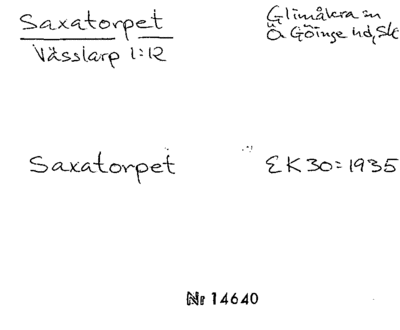 Saxatorpet
Vässlarp 1:12
Glimåkra sn
Ö Göinge hd, Sk
Saxatorpet
EK30=1935
Nr 14640